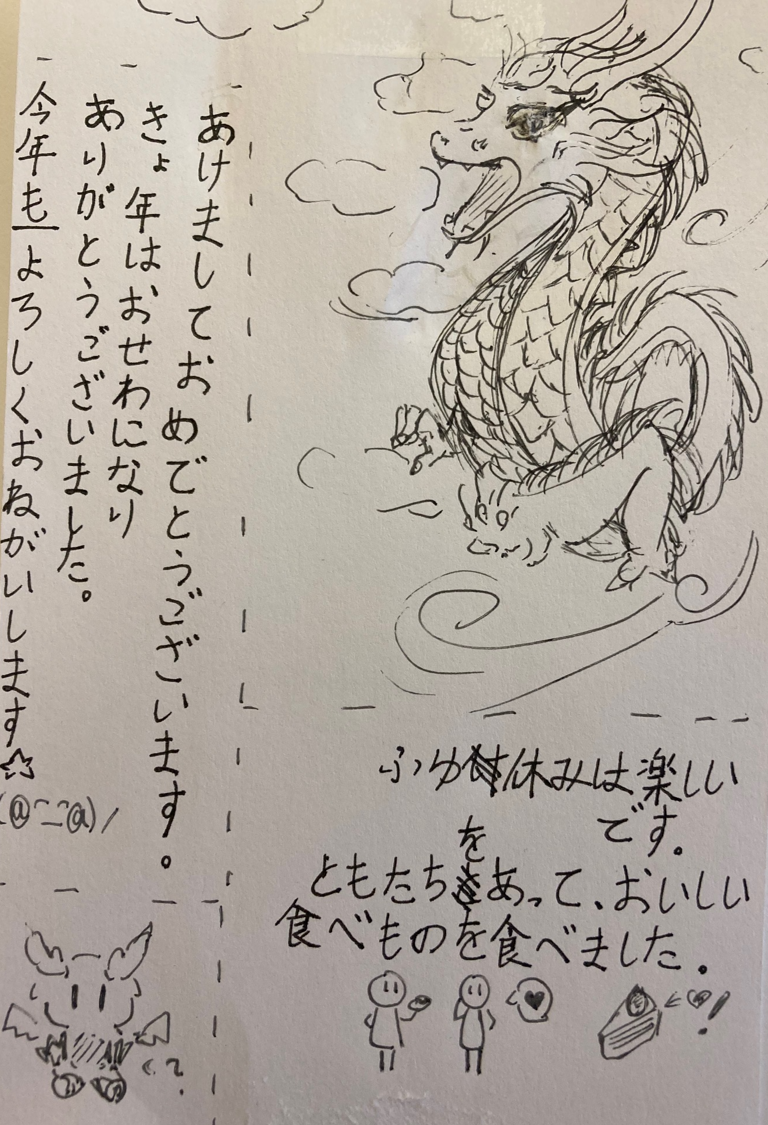 あけましておめでとうございます。
きょ年はおせわになり
ありがとうございました。
今年もよろしくおねがいします☆
(@^-^@)/
ふゆ休みは楽しい
です。
ともたちをあって、おいしい
食べものを食べました。